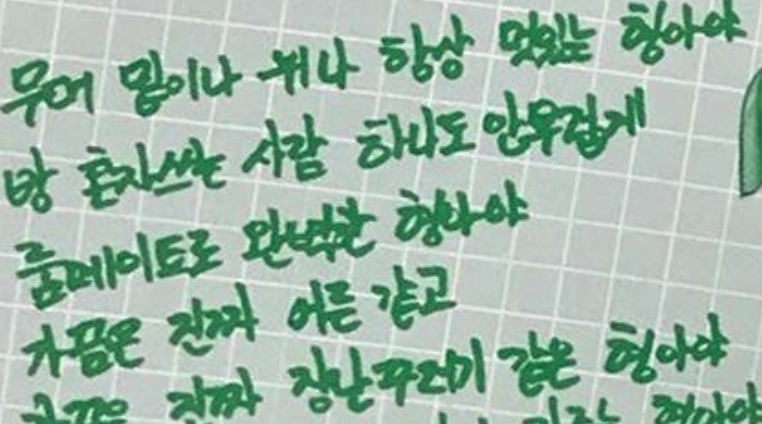 무대 밑이나 위나 항상 멋있는 형아야
방 혼자쓰는 사람 하나도 안부럽게
룸메이트로 완벽한 형아야
가끔은 진짜 어른 같고
가끔은 진짜 장난꾸러기 같은 형아야
형아야